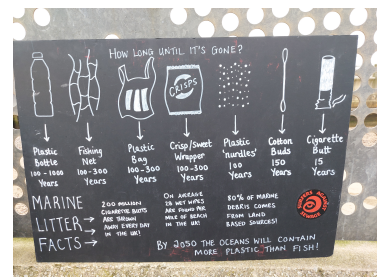 HOW LONG UNTIL IT'S GONE?
CRISPS
Plastic Bottle 100-1000 Years
Fishing Net 100-300 Years
Plastic Bag 100-300 Years
Crisp/Sweet Wrapper 100-300 Years
Plastic 'nurdles' 100 Years
Cotton Buds 150 Years
Cigarette Butt 15 Years
MARINE
LITTER →
FACTS →
200 MILLION
CIGARETTE BUTTS
ARE THROWN
AWAY EVERY DAY
IN THE UK!
ON AVERAGE
28 WET WIPES
ARE FOUND PER
MILE OF BEACH
IN THE UK!
80% OF MARINE
DEBRIS COMES
FROM LAND
BASED SOURCES!
SURFERS AGAINST SEWAGE
BY 2050 THE OCEANS WILL CONTAIN
MORE PLASTIC THAN FISH!